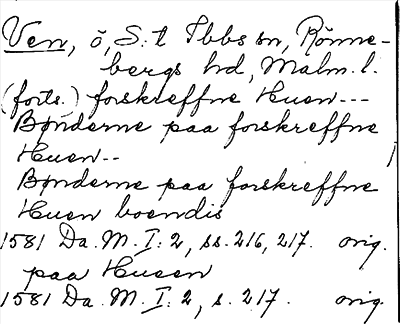 Ven, ö, S:t Ibbs sn, Rönne-
bergs hd, Malm. l.
(forts.) forskreffne Huen---
Bønderne paa forskreffne
Huen--
Bønderne paa forskreffne
Huen boendis
1581 Da. M. I: 2, ss. 216, 217. orig.
paa Hueen
1581 Da. M. I: 2, s. 217. orig.